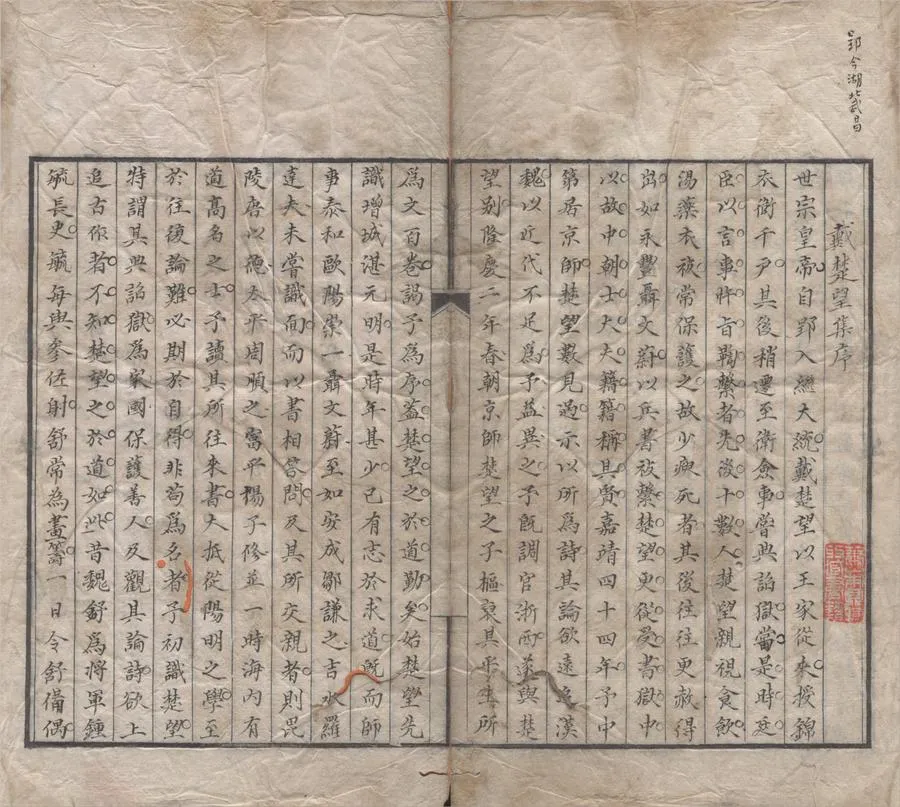 郢今湖北武昌
戴楚望集序
世宗皇帝自郢入繼大統戴楚望以王家從來授錦
衣衛千戶其後稍遷至衛僉事嘗典詔獄當是時廷
臣以言事忤旨羈繫者先後十數人楚望親視食飲
湯藥衣被常保護之故少瘐死者其後往往更赦得
出如永豐聶文蔚以兵書被繫楚望更從受書獄中
以故中朝士大夫籍籍稱其賢嘉靖四十四年予中
第居京師楚望數見過示以所為詩其論欲遠追漢
魏以近代不足為予益異之予既調官浙西遂與楚
望別隆慶二年春朝京師楚望之子樞裒其平生所
為文百卷謁予為序蓋楚望之於道勤矣始楚望先
識增城湛元明是時年甚少已有志於求道既而師
事泰和歐陽崇一聶文蔚至如安成鄒謙之吉水羅
達夫未嘗識而以書相答問及其所交親者則毘
陵唐以德太平周順之富平楊子修並一時海內有
道高名之士予讀其所往來書大抵從陽明之學至
於往復論難必期於自得非苟為名者予初識楚望
特謂其典詔獄為家國保護善人及觀其論詩欲上
追古作者不知楚望之於道如此昔魏舒為將軍鍾
毓長史毓每與參佐射舒常為畫籌一日令舒備偶